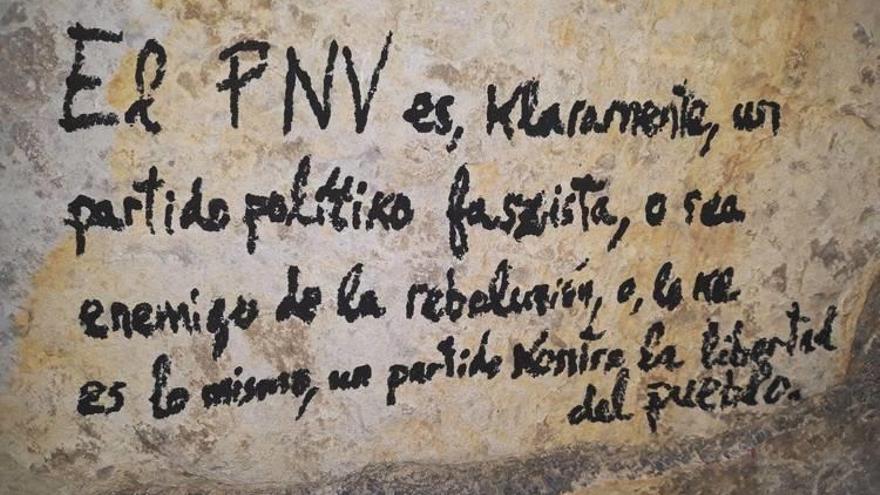 El PNV es, klaramente, un
partido polítiko faszista, o sea
enemigo de la reboluzión, o, lo ke
es lo mismo, un partido kontra la libertad
del pueblo.